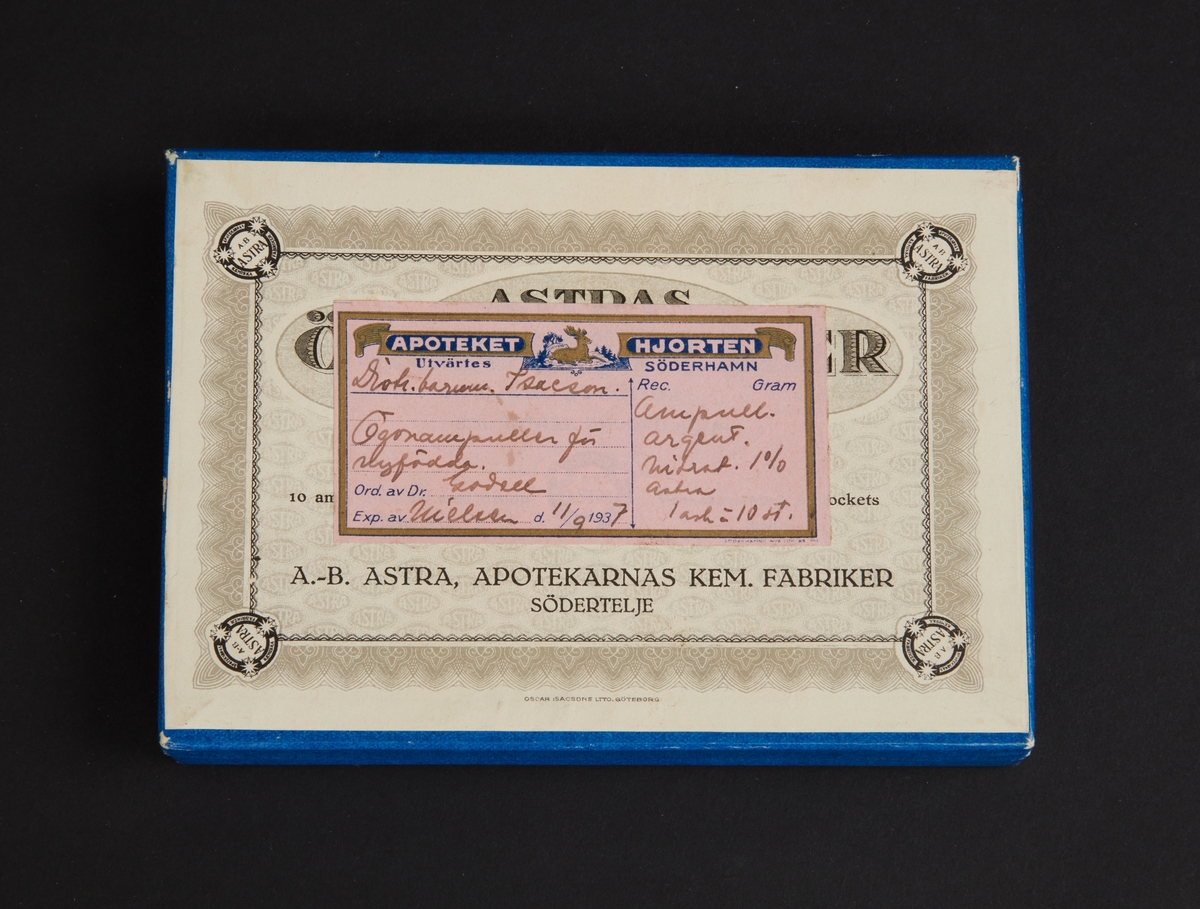 ASTRAS
ER
APOTEKET HJORTEN
Utvärtes SÖDERHAMN
Isacson.
Rec. Gram
Ögonampuller för
nyfödda.
Ord. av Dr.
Exp. av Nielsen d. 11/9 1937
Ampull.
argent.
nitrat. 1%
Astra
1 ask à 10 st.
10 am
ockets
A.-B. ASTRA, APOTEKARNAS KEM. FABRIKER
SÖDERTELJE
A.B. ASTRA
A.B. ASTRA
A.B. ASTRA
A.B. ASTRA
OSCAR ISACSONS LITO. GÖTEBORG